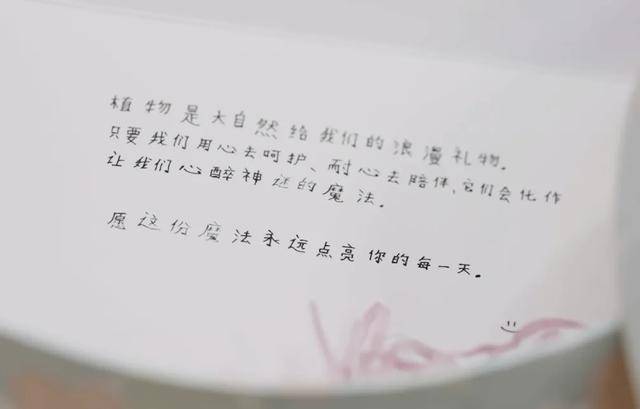 植物是大自然给我们的浪漫礼物。
只要我们用心去呵护、耐心去陪体,它们会化作
让我们心醉神迷的魔法。
愿这份魔法永远点亮你的每一天。